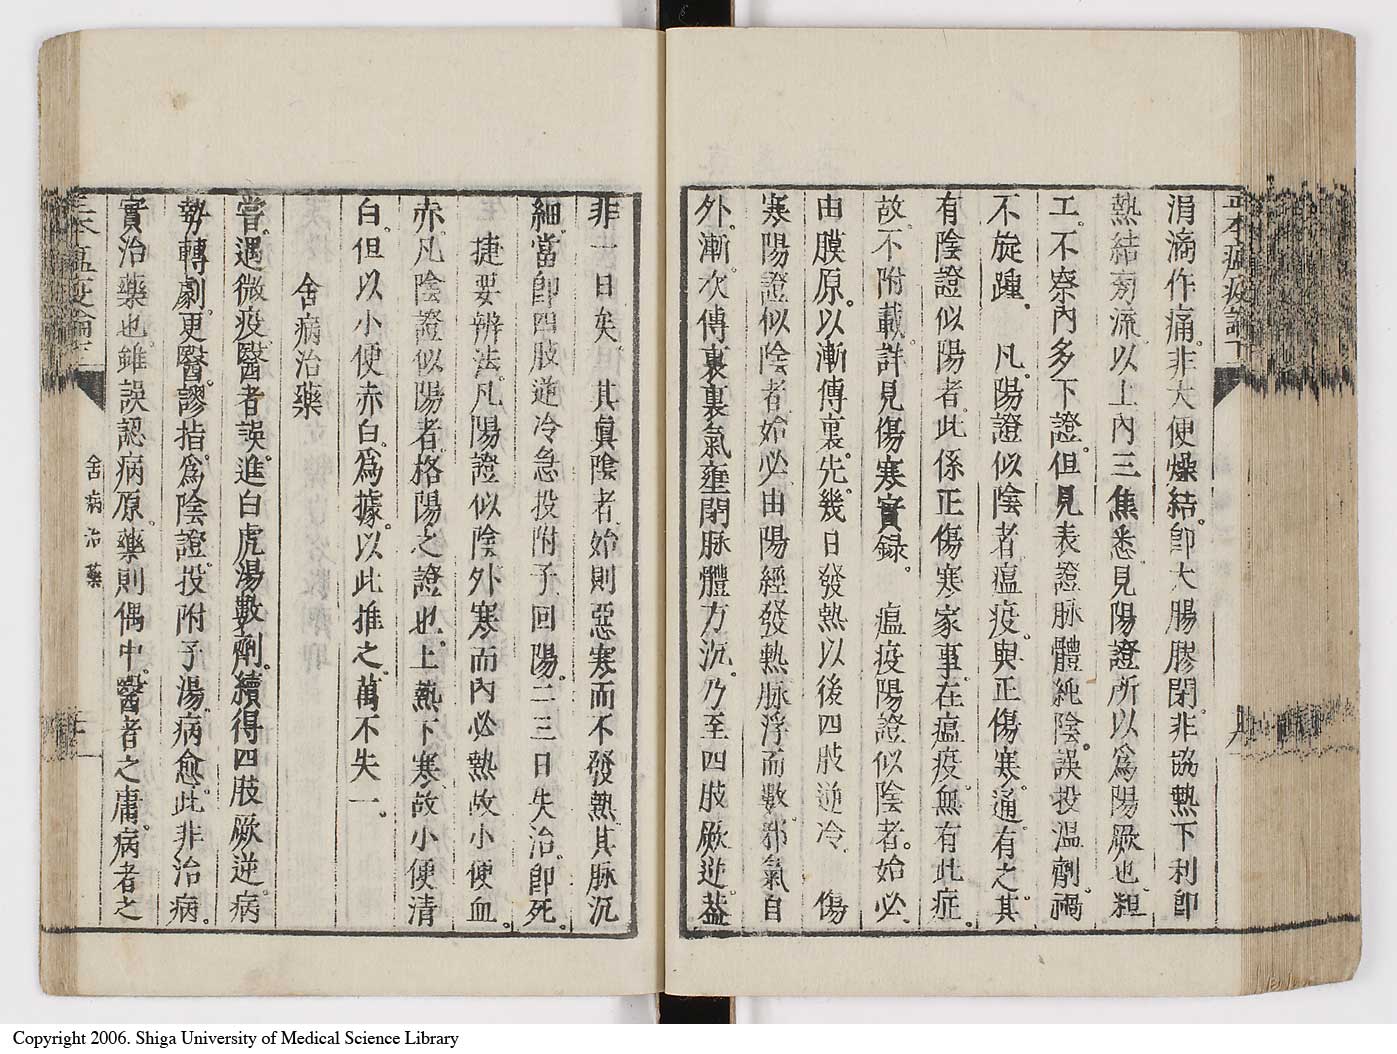 涓滴作痛。非大便燥結。卽大腸膠閉。非協熱下利卽
熱結旁流以上內三焦悉見陽證所以爲陽厥也。粗
工。不察內多下證。但見表證脉體純陰。誤投溫劑。禍
不旋踵。　凡。陽證似陰者。瘟疫。與正傷寒。通有之。其
有陰證似陽者。此係正傷寒家事。在瘟疫。無有此症。
故。不附載。詳見傷寒實録。　瘟疫陽證似陰者。始必。
由膜原。以漸傳裏。先。幾日發熱以後四肢逆冷　傷
寒陽證似陰者。始必由陽經發熱脉浮而數。邪氣自
外。漸次傳裏裏氣壅閉脉體方沉。乃至四肢厥逆。蓋
非一日矣　其眞陰者。始則惡寒而不發熱其脉沉
細。當卽四肢逆冷急投附子回陽。二三日失治。卽死。
捷要辨法。凡陽證似陰外寒而內必熱故小便血。
赤。凡陰證似陽者。格陽之證也。上熱下寒。故小便清
白。但以小便赤白。爲據。以此推之。萬不失一。
舍病治藥
嘗。遇微疫醫者誤進白虎湯數劑。續得四肢厥逆。病
勢轉劇。更醫。謬指。爲陰證。投附子湯。病愈。此非治病。
實治藥也。雖誤認病原。藥則偶中。醫者之庸。病者之
舍病治藥